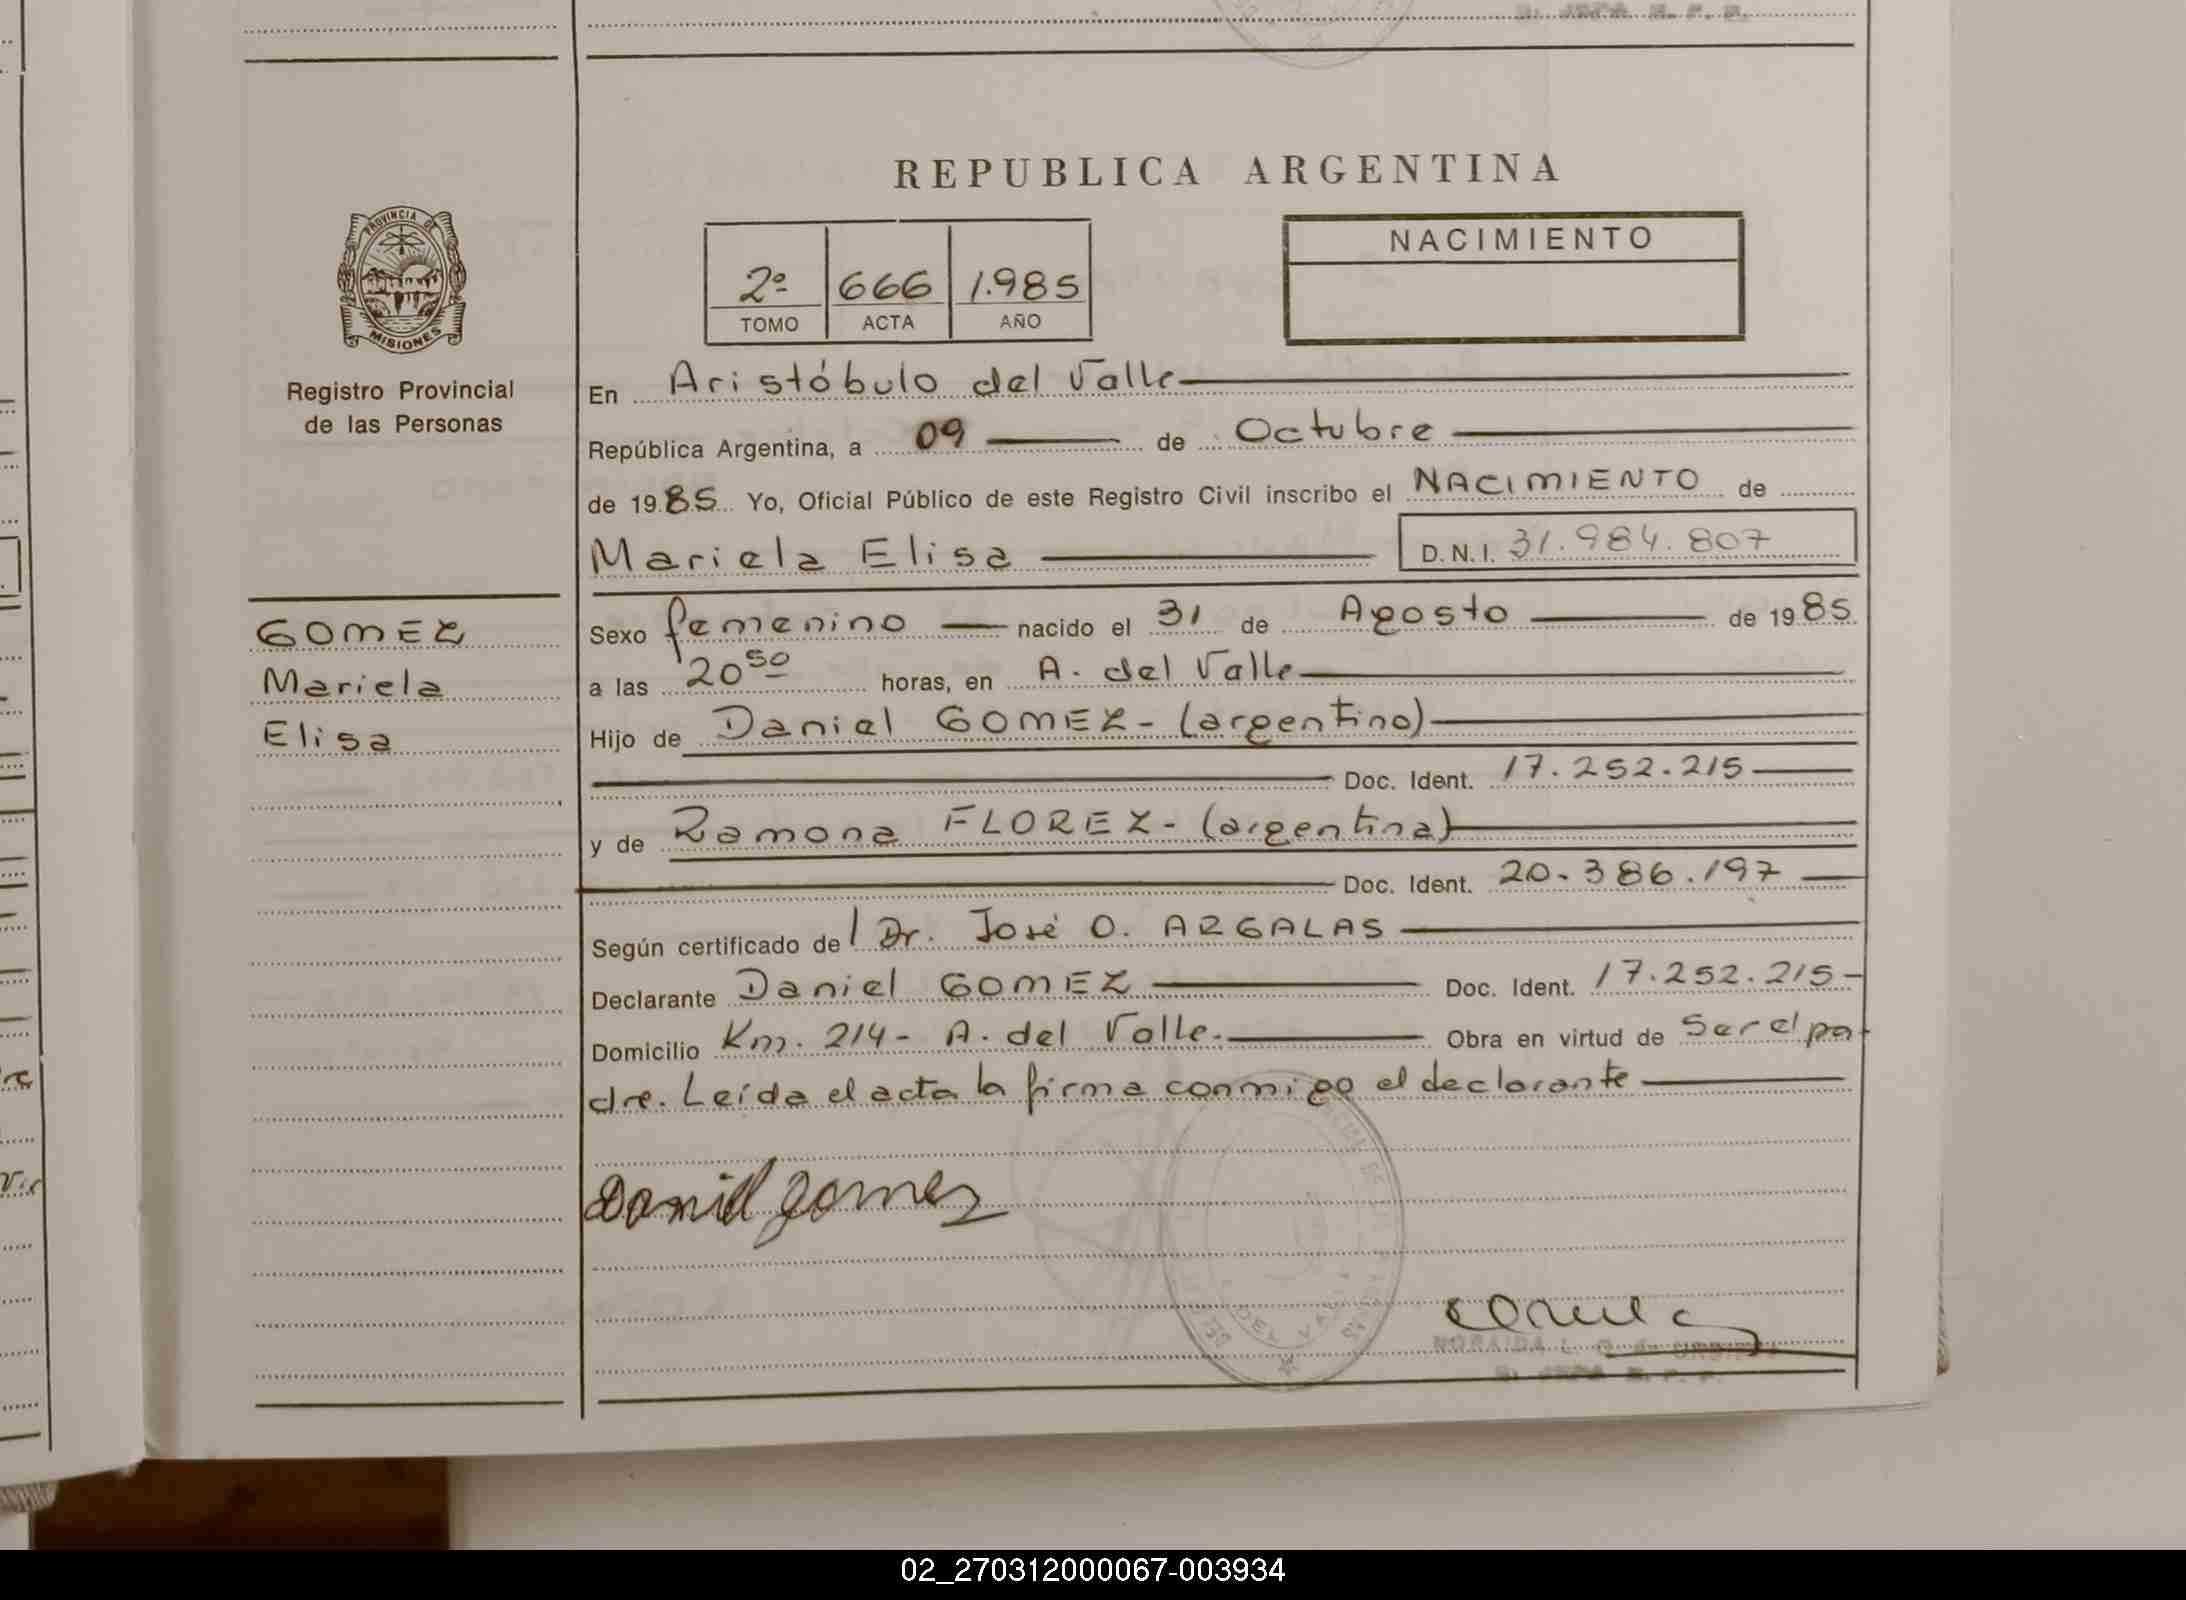 REPUBLICA ARGENTINA
PROVINCIA DE MISIONES
Registro Provincial
de las Personas
2º 666 1.985
TOMO ACTA AÑO
NACIMIENTO
En Aristóbulo del Valle
República Argentina, a 09 de Octubre
de 1985 Yo, Oficial Público de este Registro Civil inscribo el NACIMIENTO de
Mariela Elisa D.N.I. 31.984.807
GOMEZ
Mariela
Elisa
Sexo femenino nacido el 31 de Agosto de 1985
a las 20 50 horas, en A. del Valle
Hijo de Daniel GOMEZ - (argentino)
Doc. Ident. 17.252.215
y de Ramona FLOREZ - (argentina)
Doc. Ident. 20.386.197
Según certificado de / Dr. José O. ARGALAS
Declarante Daniel GOMEZ Doc. Ident. 17.252.215
Domicilio Km. 214 - A. del Valle. Obra en virtud de Ser el pa-
dre. Leída el acta la firma conmigo el declarante
Daniel Gomez
DEL VALLE
02_270312000067-003934